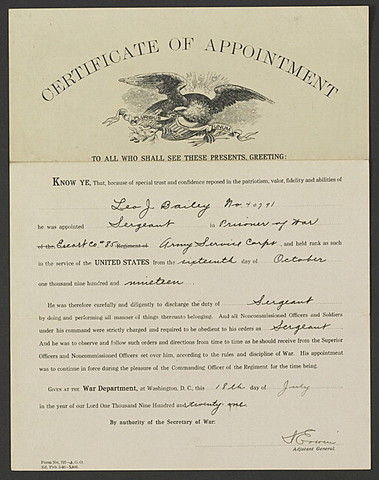 CERTIFICATE OF APPOINTMENT
TO ALL WHO SHALL SEE THESE PRESENTS, GREETING:
KNOW YE, That, because of special trust and confidence reposed in the patriotism, valor, fidelity and abilities of
Leo J. Bailey No. 40791
he was appointed Sergeant in Prisoner of War
of the Escort Co. #85 Regiment of Army Service Corps, and held rank as such
in the service of the UNITED STATES from the sixteenth day of October
one thousand nine hundred and nineteen.
He was therefore carefully and diligently to discharge the duty of Sergeant
by doing and performing all manner of things thereunto belonging. And all Noncommissioned Officers and Soldiers
under his command were strictly charged and required to be obedient to his orders as Sergeant.
And he was to observe and follow such orders and directions from time to time as he should receive from the Superior
Officers and Noncommissioned Officers set over him, according to the rules and discipline of War. His appointment
was to continue in force during the pleasure of the Commanding Officer of the Regiment for the time being.
GIVEN AT THE War Department, at Washington, D. C., this 18th day of July
in the year of our Lord One Thousand Nine Hundred and twenty one.
By authority of the Secretary of War:
Adjutant General.
Form No. A. G. O.